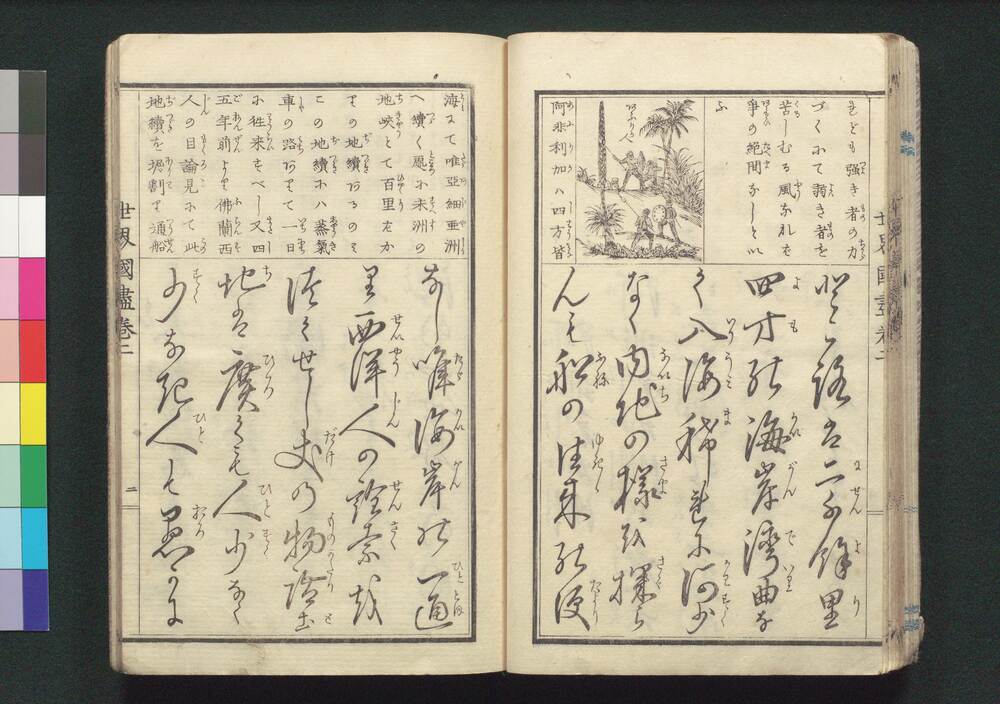 れども強き者の力
づくにて弱き者を
苦しむる風なれバ
争の絶間なしとい
ふ
阿非利加ハ四方皆
路は二千餘里
四方能海岸湾曲な
く入海稀に河少
なく内地の様を探ら
んも船の往来能便
世界國盡巻二
海にて唯亜細亜洲
へ續く處に朱洲の
地峡とて百里
りの地續あるのミ
この地續にハ蒸氣
車の路ありて一日
に往来すべし又四
五年前より佛蘭西
人の目論見にて此
地續を堀割り通船
なし唯海岸能一通
里西洋人の詮索越
せし丈の物語
地は廣くも人少なく
少な起人も愚
世界國盡巻二
二